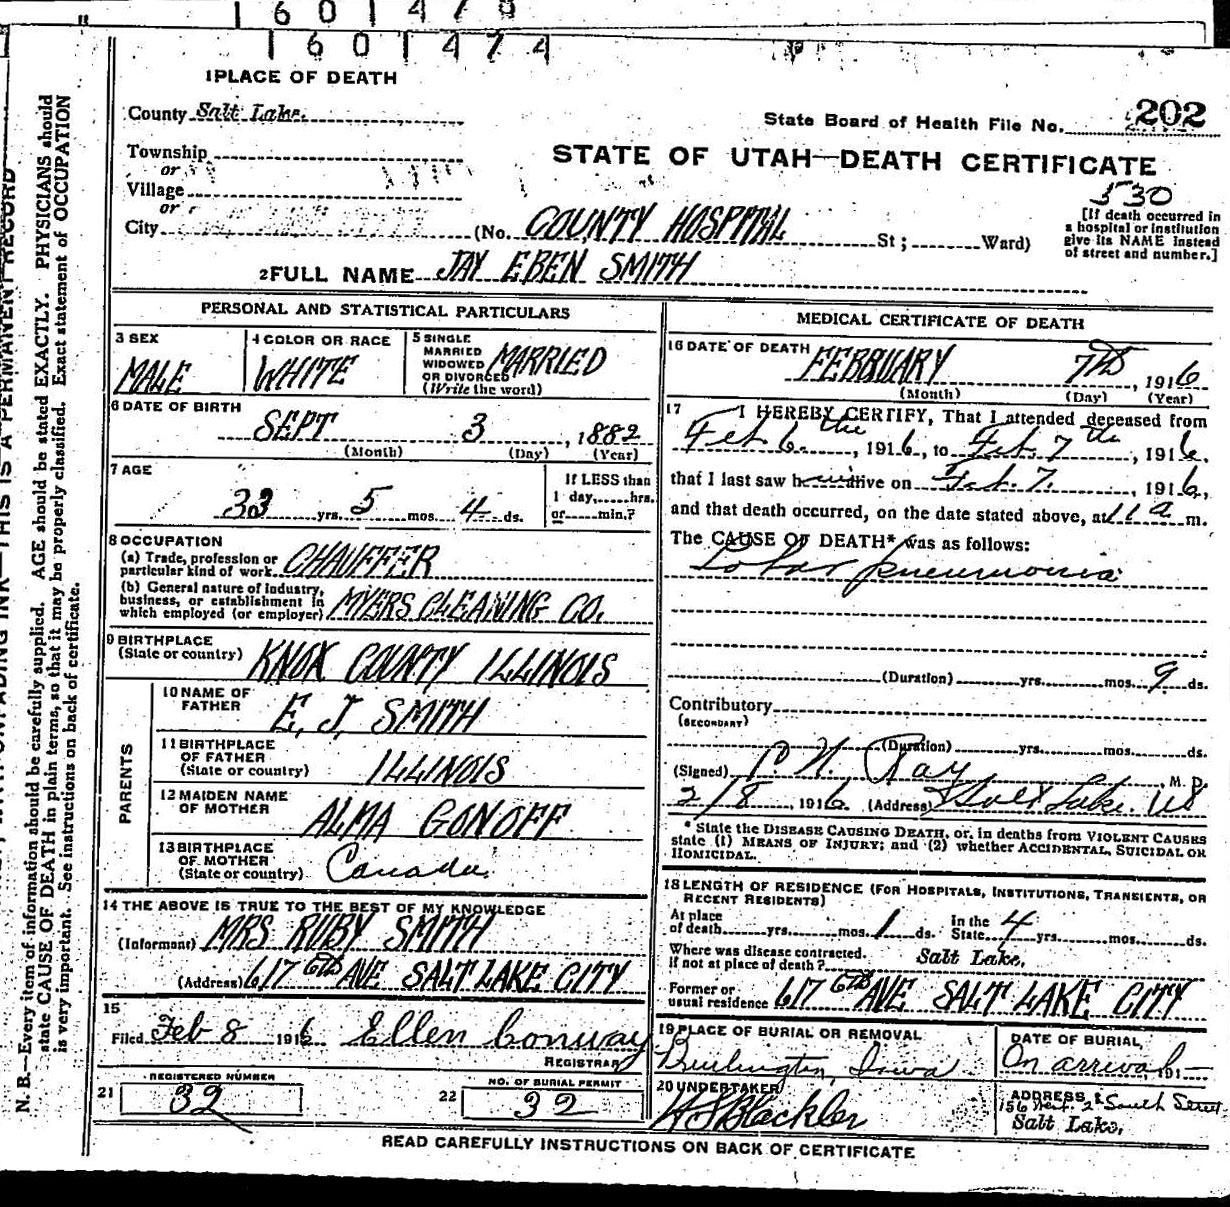 1601478
1601474
N. B.—Every item of information should be carefully supplied. AGE should be stated EXACTLY. PHYSICIANS should
state CAUSE OF DEATH in plain terms, so that it may be properly classified. Exact statement of OCCUPATION
is very important. See instructions on back of certificate.
THIS IS A PERMANENT RECORD
1 PLACE OF DEATH
County Salt Lake.
State Board of Health File No. 202
Township
or
STATE OF UTAH—DEATH CERTIFICATE
Village
530
or
City (No. COUNTY HOSPITAL St; Ward)
[If death occurred in
a hospital or institution
give its NAME instead
of street and number.]
2 FULL NAME JAY EBEN SMITH
PERSONAL AND STATISTICAL PARTICULARS
3 SEX
MALE
4 COLOR OR RACE
WHITE
5 SINGLE
MARRIED
WIDOWED
OR DIVORCED
(Write the word)
MARRIED
6 DATE OF BIRTH
SEPT 3, 1882
(Month) (Day) (Year)
7 AGE
33 yrs. 5 mos. 4 ds.
If LESS than
1 day, hrs.
or min.?
8 OCCUPATION
(a) Trade, profession or
particular kind of work CHAUFFER
(b) General nature of industry,
business, or establishment in
which employed (or employer) MYERS CLEANING CO.
9 BIRTHPLACE
(State or country) KNOX COUNTY ILLINOIS
PARENTS
10 NAME OF
FATHER E, J, SMITH
11 BIRTHPLACE
OF FATHER
(State or country) ILLINOIS
12 MAIDEN NAME
OF MOTHER ALMA GONOFF
13 BIRTHPLACE
OF MOTHER
(State or country) Canada.
14 THE ABOVE IS TRUE TO THE BEST OF MY KNOWLEDGE
(Informant) MRS RUBY SMITH
(Address) 617 6TH AVE SALT LAKE CITY
15
Filed Feb 8 1916 Ellen Conway
REGISTRAR
21 REGISTERED NUMBER
32
22 NO. OF BURIAL PERMIT
32
MEDICAL CERTIFICATE OF DEATH
16 DATE OF DEATH
FEBRUARY 7TH, 1916
(Month) (Day) (Year)
17 I HEREBY CERTIFY, That I attended deceased from
Feb. 6 the, 1916, to Feb. 7 th, 1916,
that I last saw h alive on Feb. 7, 1916,
and that death occurred, on the date stated above, at 11 a m.
The CAUSE OF DEATH* was as follows:
Lobar pneumonia
(Duration) yrs. mos. 9 ds.
Contributory
(SECONDARY)
(Duration) yrs. mos. ds.
(Signed) P. N. Ray, M. D.
2/8, 1916 (Address) Salt Lake.
* State the DISEASE CAUSING DEATH, or, in deaths from VIOLENT CAUSES
state (1) MEANS OF INJURY; and (2) whether ACCIDENTAL, SUICIDAL OR
HOMICIDAL.
18 LENGTH OF RESIDENCE (FOR HOSPITALS, INSTITUTIONS, TRANSIENTS, OR
RECENT RESIDENTS)
At place
of death yrs. mos. 1 ds. In the State 4 yrs. mos. ds.
Where was disease contracted.
If not at place of death? Salt Lake.
Former or
usual residence 617 6TH AVE SALT LAKE CITY
19 PLACE OF BURIAL OR REMOVAL
Burlington, Iowa
DATE OF BURIAL
On arrival, 191—
20 UNDERTAKER
ADDRESS
156 West 2 South Street.
Salt Lake,
READ CAREFULLY INSTRUCTIONS ON BACK OF CERTIFICATE